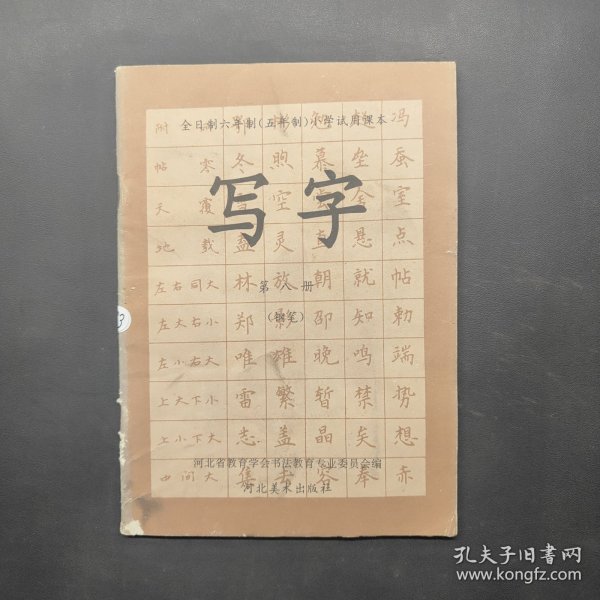 全日制六年制(五年制)小学试用课本
写字
第八册
(钢笔)
河北省教育学会书法教育专业委员会编
河北美术出版社
附
冯
帖 寒 冬 煦 慕 垒 蚕
天 覆 空 室
地 载 盖 灵 直 悬 点
左右同大 林 放 朝 就 帖
左大右小 郑 影 邵 知 勅
左小右大 唯 雄 晚 鸣 端
上大下小 雷 繁 暂 禁 势
上小下大 志 盖 晶 矣 想
中间大 集 奉 赤
3
孔夫子旧书网
www.kongfz.com